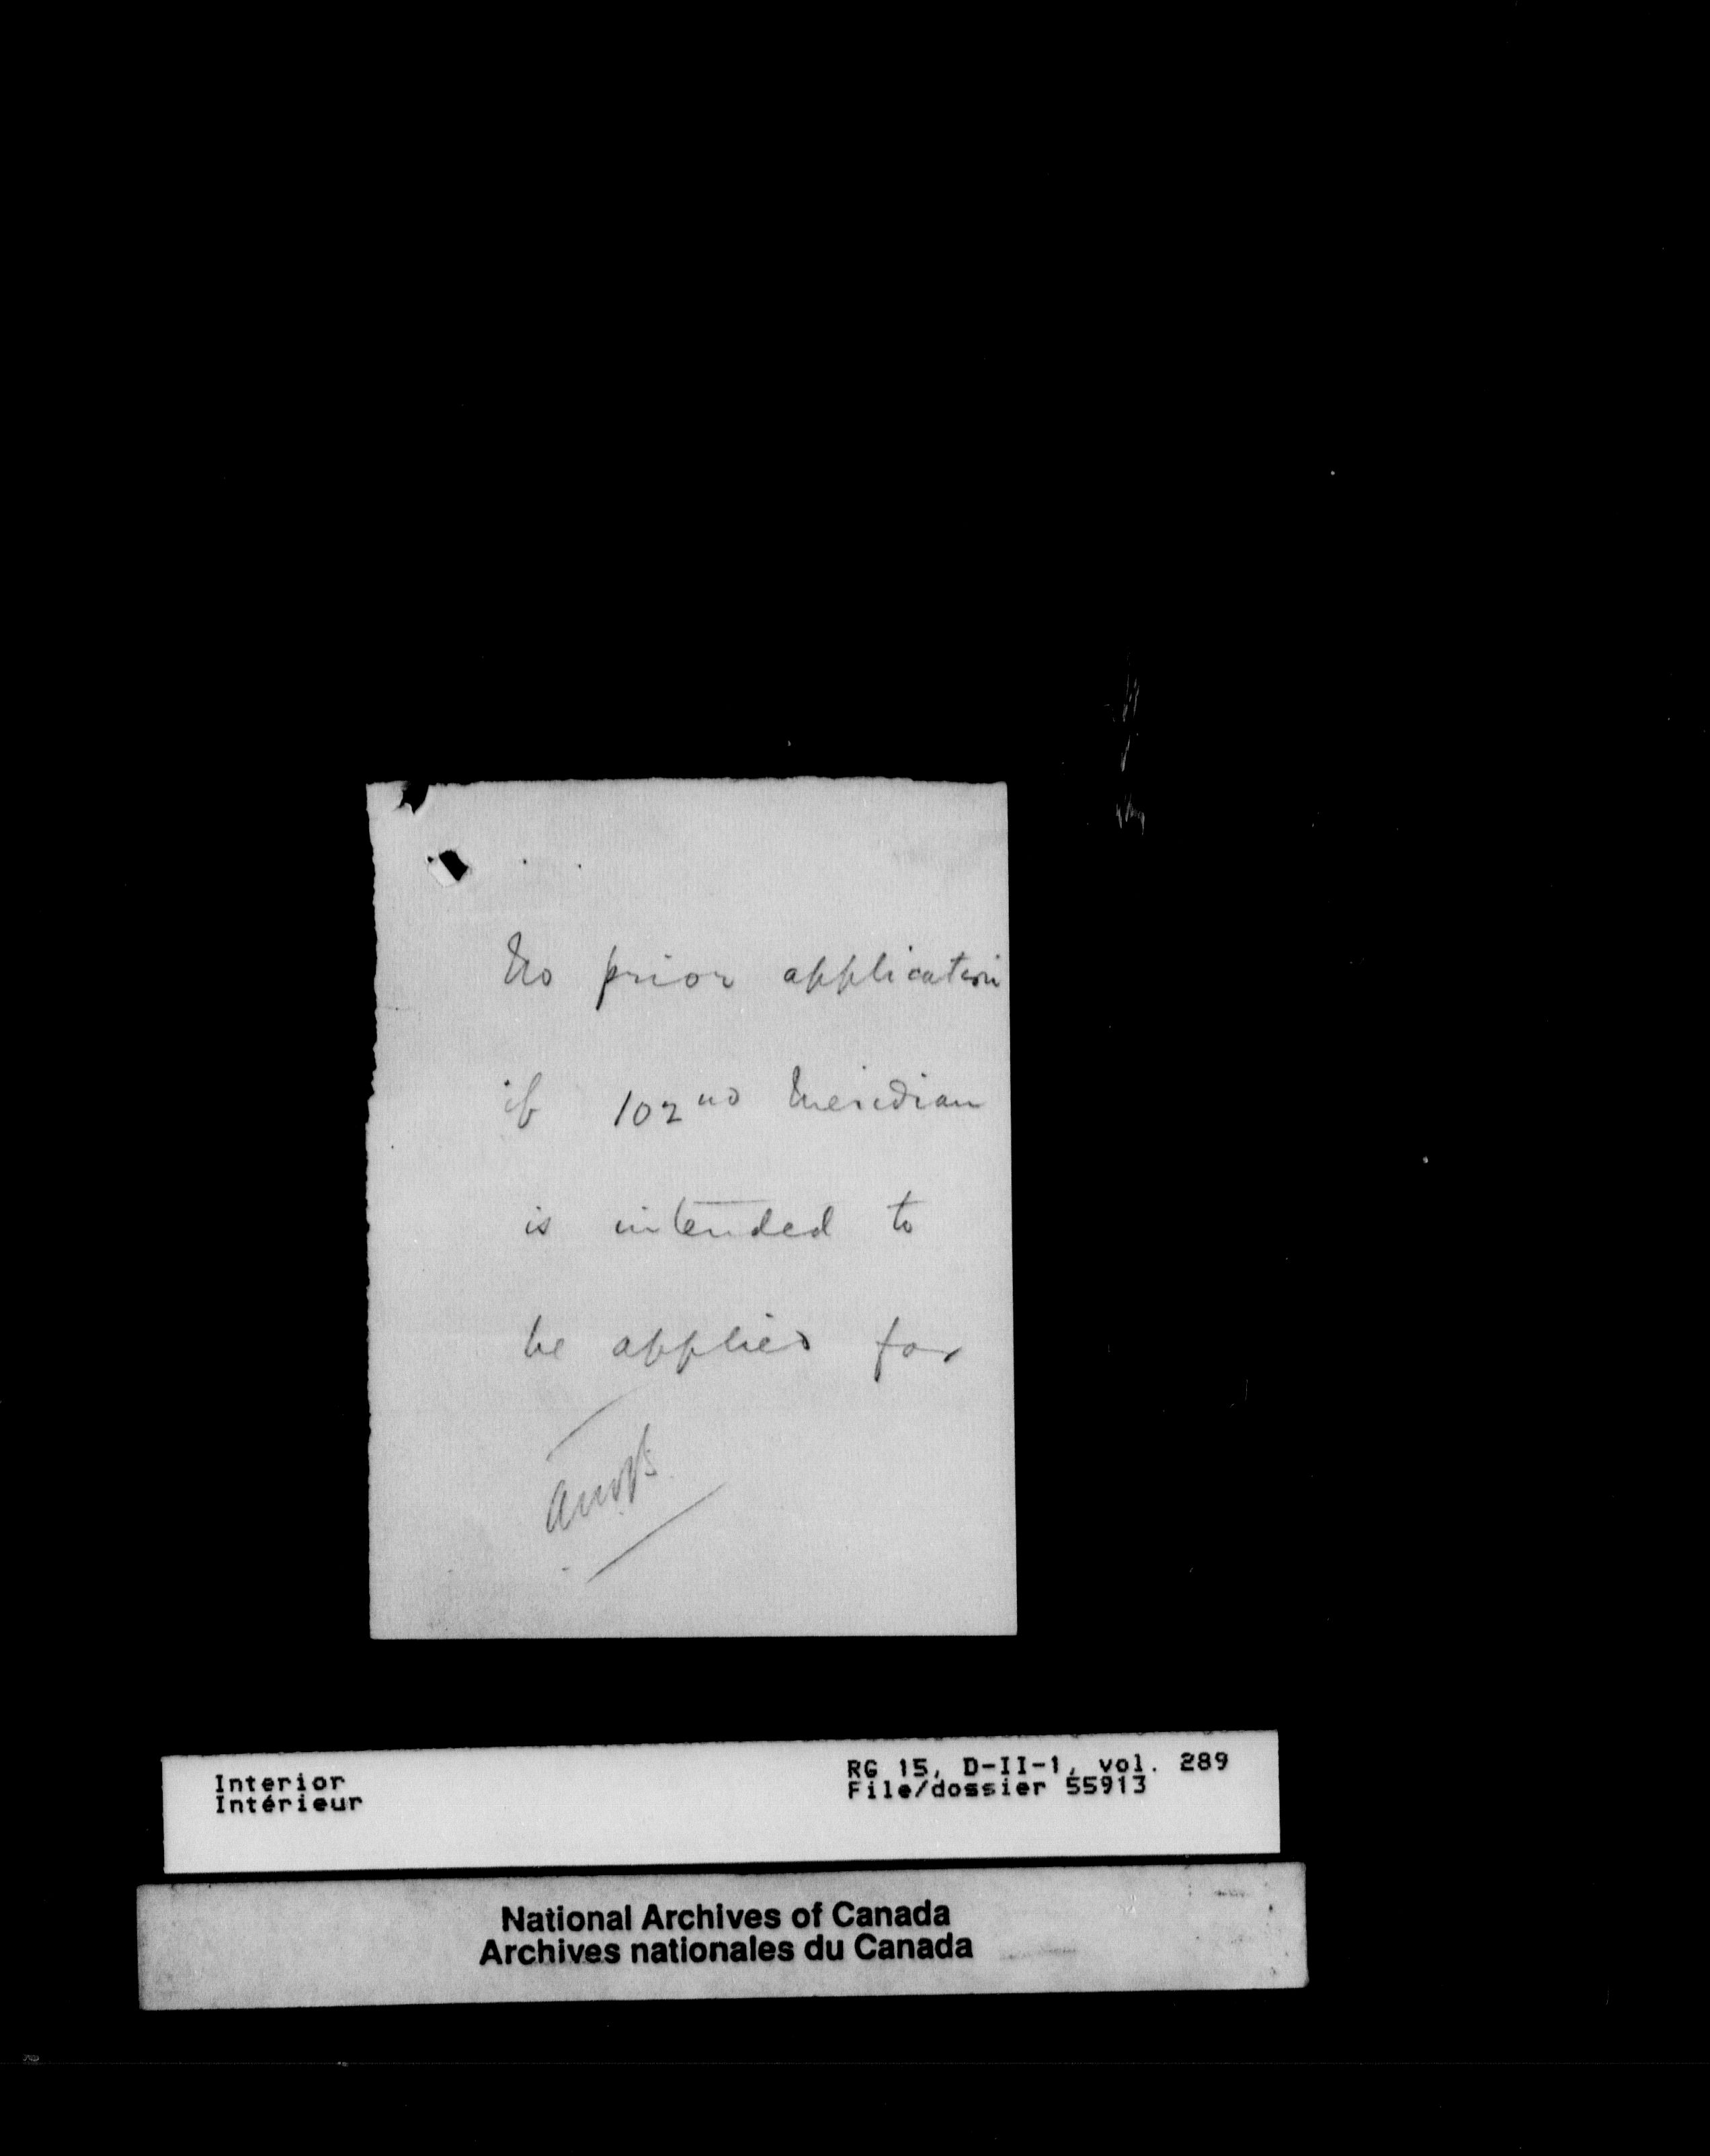 No prior application
if 102nd Meridian
is intended to
be applied for
Interior
Intérieur
RG 15, D-II-1, vol. 289
File/dossier 55913
National Archives of Canada
Archives nationales du Canada